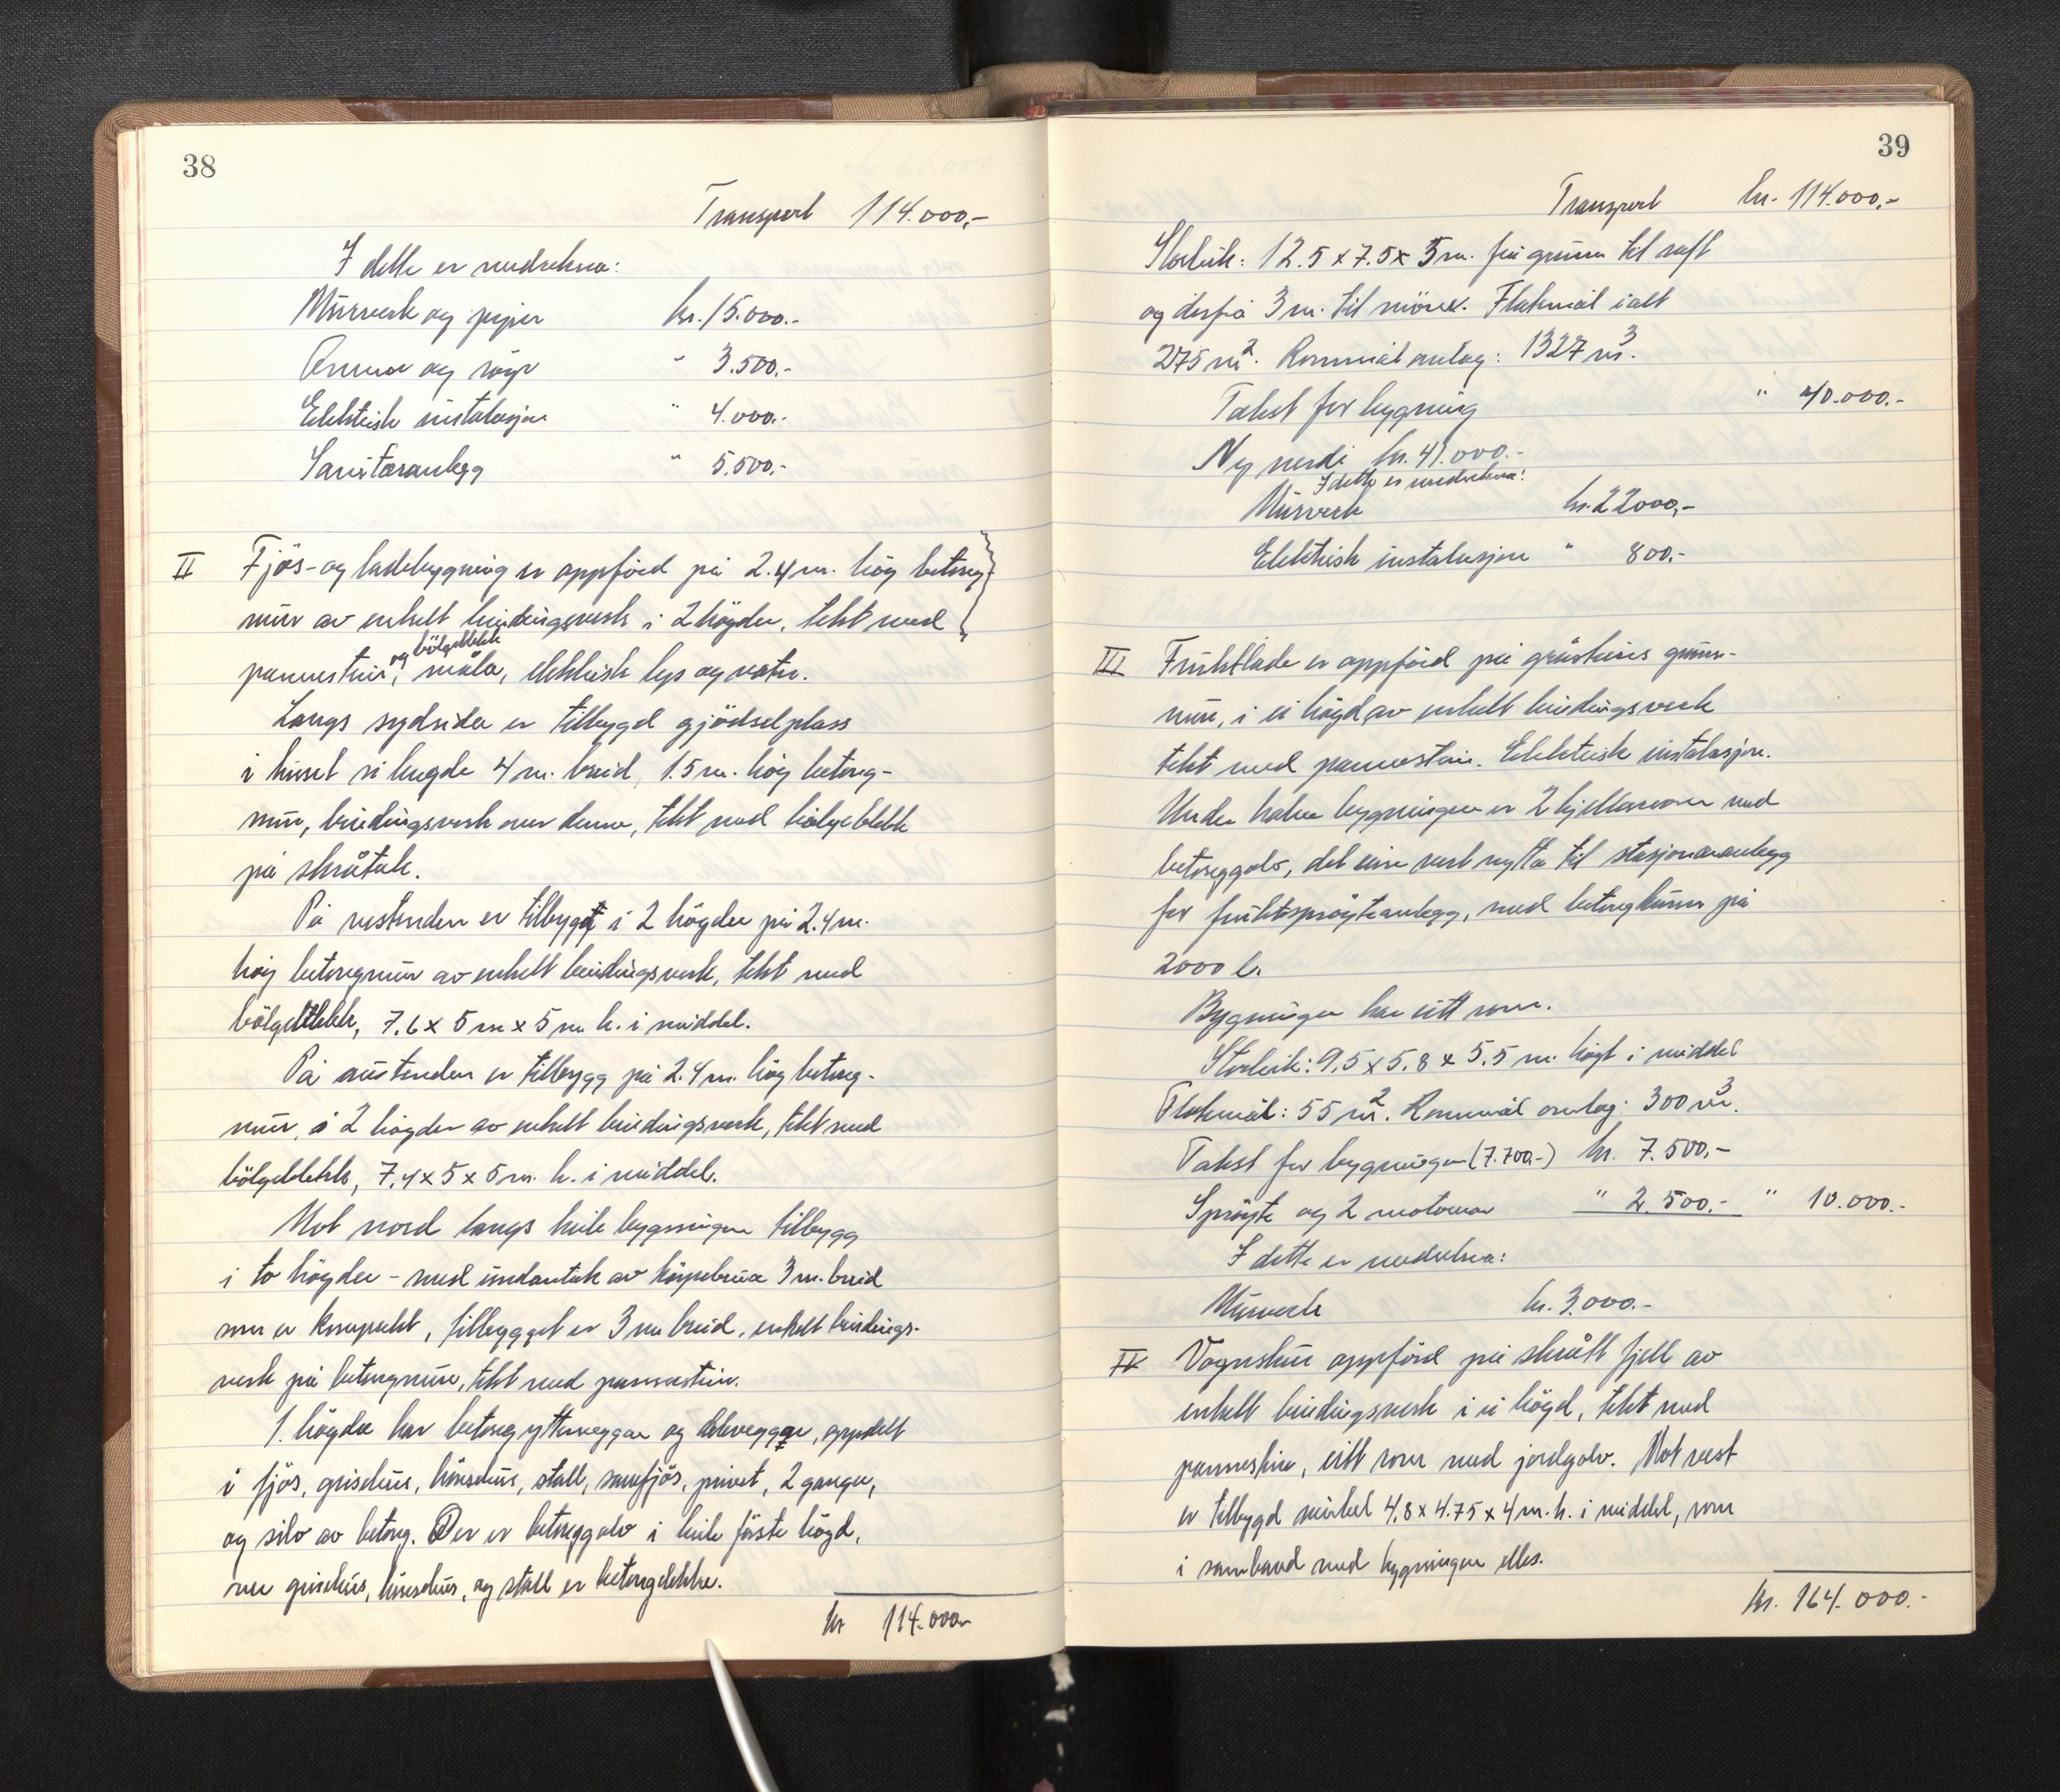 38
Transport 114.000,-
I dette er medrekna:
Murverk og piper kr. 15.000.-
Omnar og røyr " 3.500.-
Elektrisk instalasjon " 4.000.-
Sanitæranlegg " 5.500.-
II Fjös- og ladebygning er oppförd på 2.4 m. hög betong-
mur av enkelt bindingsverk i 2 högder, tekt med
pannestein, og bölgeblekk måla, elektrisk lys og vatn.
Langs sydsida er tilbygd gjödselplass
i huset si lengde 4 m. breid, 1.5 m. hög betong-
mur, bindingsverk over denne, tekt med bölgeblekk
på skråtak.
På vestenden er tilbygg i 2 högder på 2.4 m.
hög betongmur av enkelt bindingsverk, tekt med
bölgeblekk, 7,6 x 5 m x 5 m. h. i middel.
På austenden er tilbygg på 2.4 m. hög betong-
mur, i 2 högder av enkelt bindingsverk, tekt med
bölgeblekk, 7,4 x 5 x 5 m. h. i middel.
Mot nord langs heile bygningen tilbygg
i to högder - med undantak av köyrebrua 3 m. breid
som er kompakt, tilbygget er 3 m breid, enkelt bindings-
verk på betongmur, tekt med pannestein.
1. högda har betong ytterveggar og deleveggar, oppdelt
i fjös, grisehus, hönsehus, stall, sauefjös, privet, 2 ganger,
og silo av betong. Der er betonggolv i heile förste högd,
over grisehus, hönsehus, og stall er betongdekke.
kr 114.000-
39
Transport kr. 114.000,-
Storleik: 12.5 x 7.5 x 5 m. frå grunn til raft
og derfrå 3 m. til möne. Flatemål i alt
275 m². Rommål omlag: 1327 m³.
Takst for bygning " 40.000.-
Ny verdi kr. 41.000.-
I dette er medrekna:
Murverk kr. 22000,-
Elektrisk instalasjon " 800.-
III Fruktlade er oppförd på gråsteins grunn-
mur, i ei högd, av enkelt bindingsverk
tekt med pannestein. Elektrisk instalasjon.
Under halve bygningen er 2 kjellarrom med
betonggolv, det eine vert nytta til stasjonæranlegg
for fruktsprøyteanlegg, med betongkum på
2000 l.
Bygningen har eitt rom.
Storleik: 9,5 x 5,8 x 5,5 m. högt i middel
Flatemål: 55 m². Rommål omlag: 300 m³.
Takst for bygningen (7.700,-) kr. 7.500,-
Spröyte og 2 motorar " 2.500.- " 10.000.-
I dette er medrekna:
Murverk kr. 3.000.-
IV Vognskur oppförd på skrått fjell av
enkelt bindingsverk i ei högd, tekt med
pannestein, eitt rom med jordgolv. Mot vest
er tilbygd verksted 4,8 x 4.75 x 4 m. h. i middel, som
i samband med bygningen elles.
kr. 164.000.-